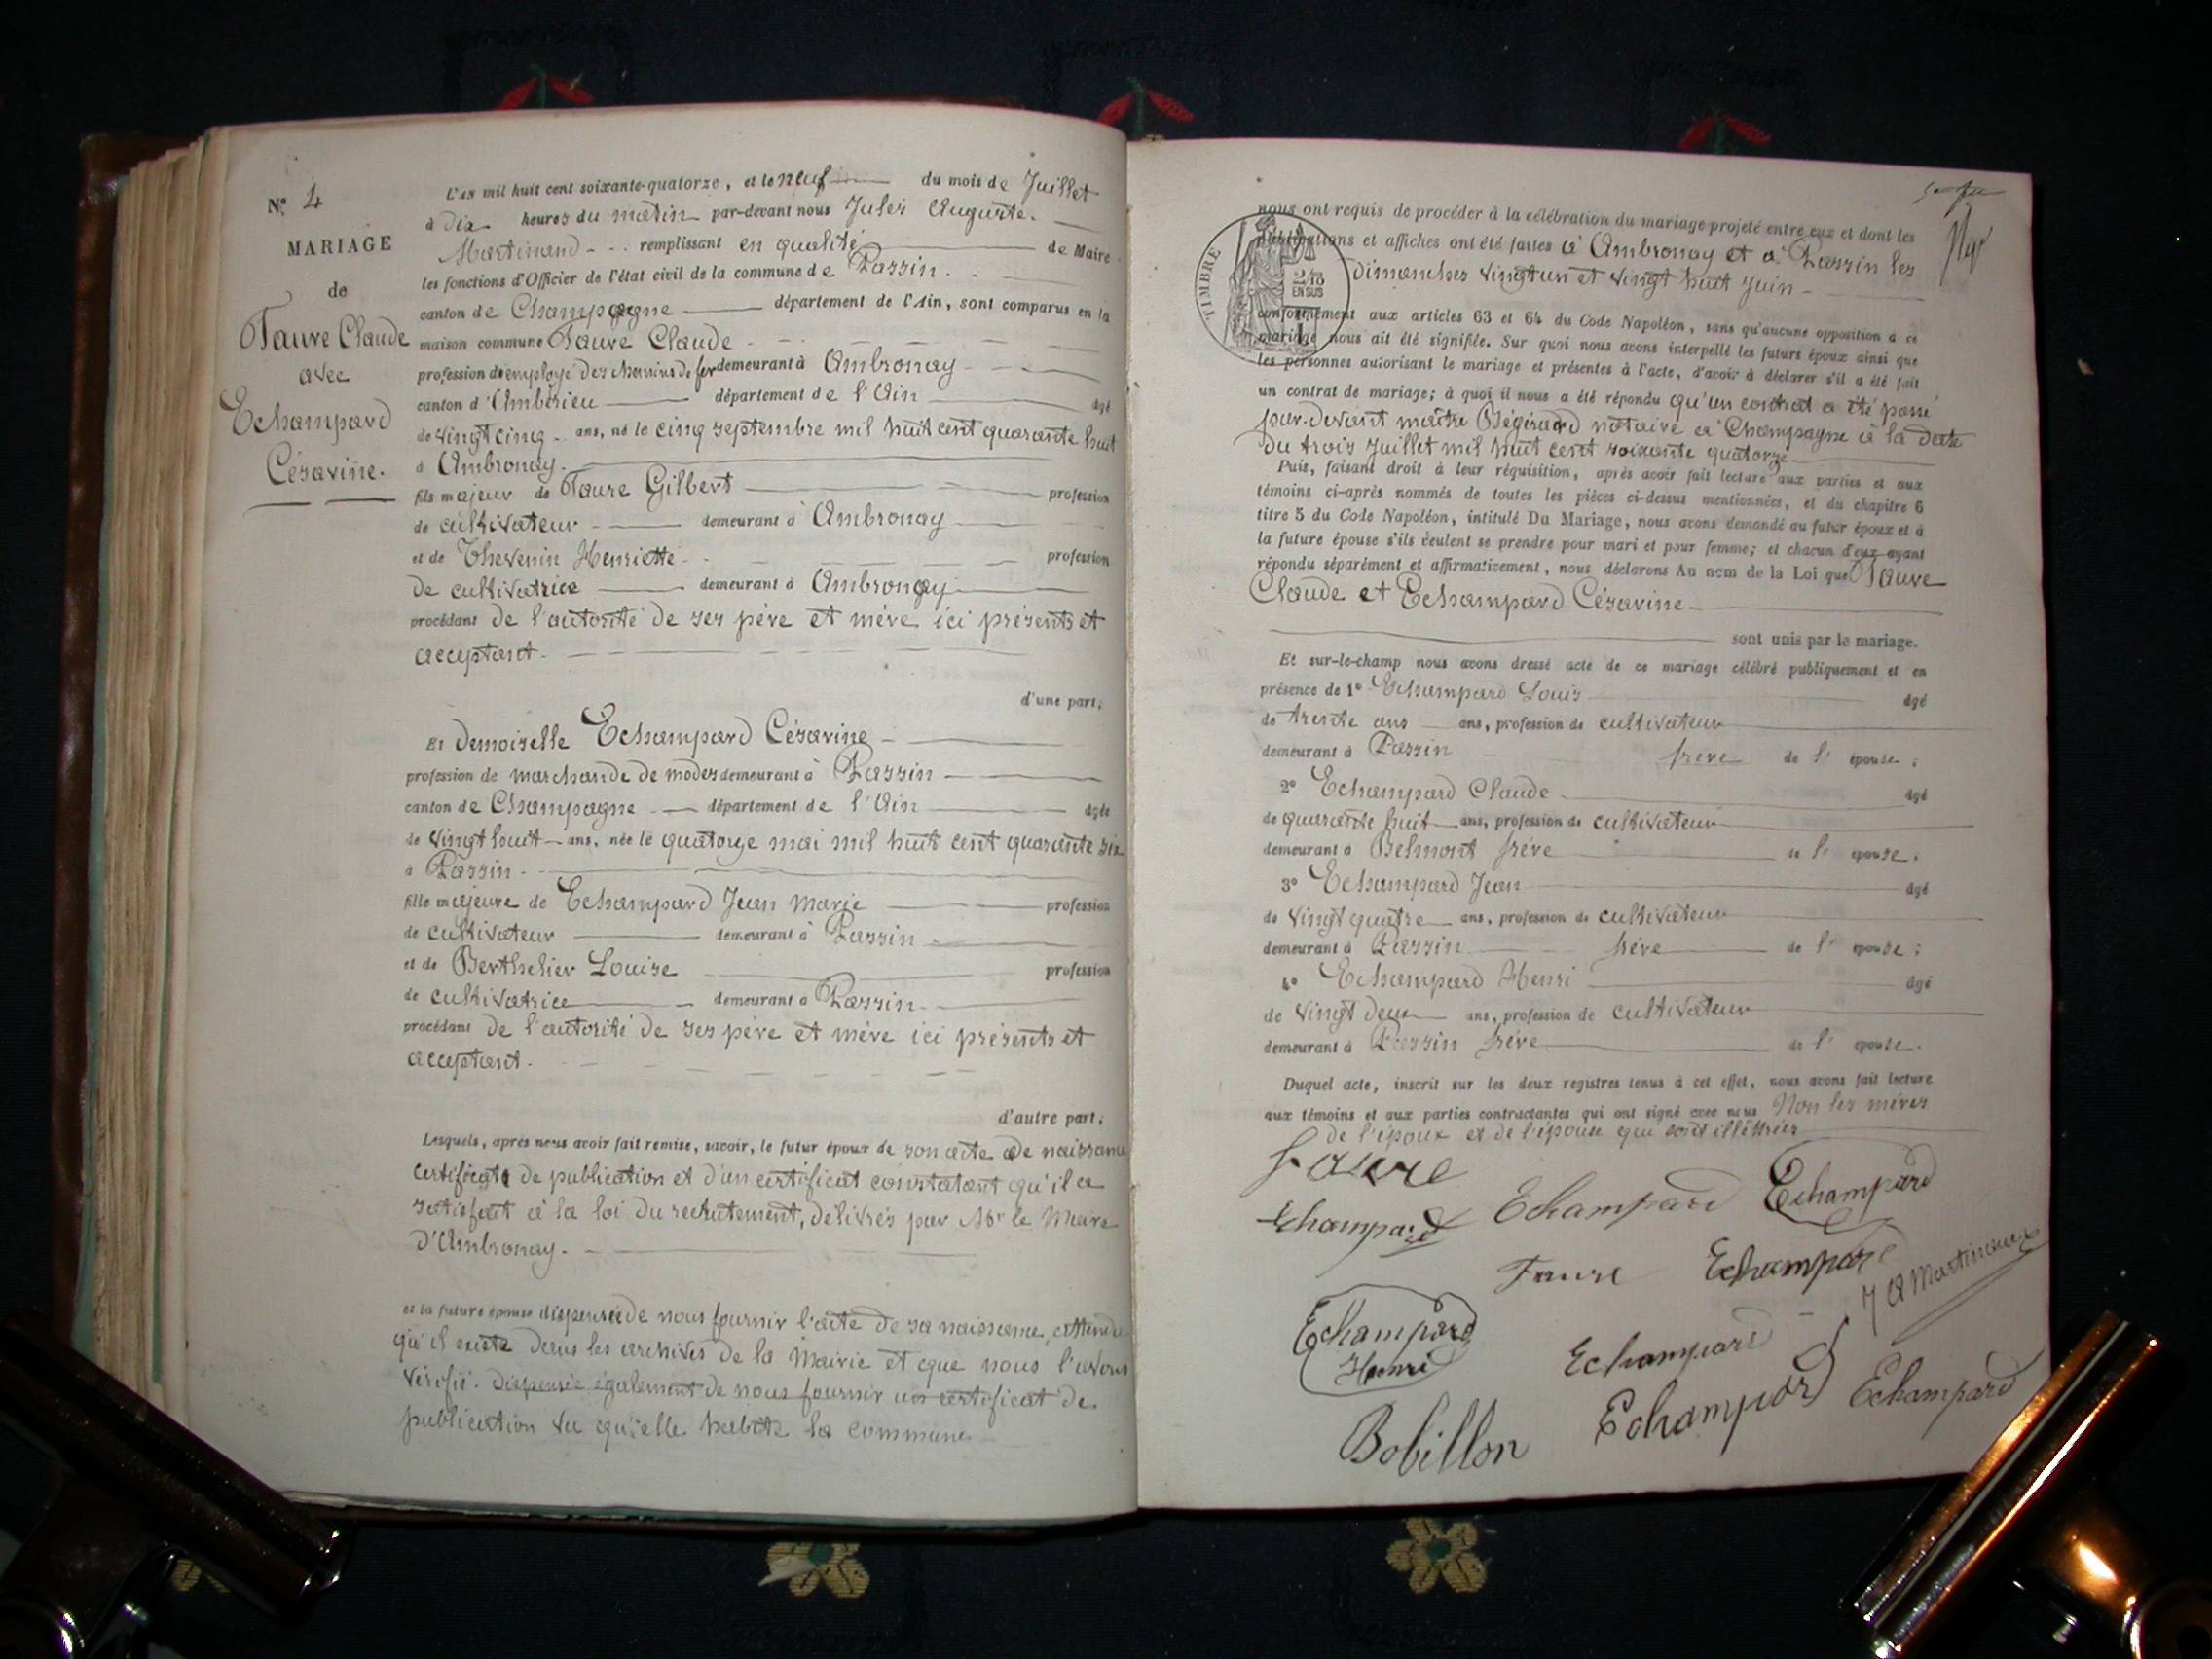 N.° 4
MARIAGE
de
Faure Claude
avec
Echampard
Césarine.
L'an mil huit cent soixante-quatorze, et le neuf du mois de Juillet
à dix heures du matin par-devant nous Jules Auguste.
Martinand - - remplissant en qualité de Maire
les fonctions d'Officier de l'état civil de la commune de Passin.
canton de Champagne département de l'Ain, sont comparus en la
maison commune Faure Claude
profession de employé des chemins de fer demeurant à Ambronay
canton d'Ambérieu département de l'Ain âgé
de vingt cinq ans, né le cinq septembre mil huit cent quarante huit
à Ambronay.
fils majeur de Faure Gilbert profession
de cultivateur demeurant à Ambronay
et de Thevenin Henriette profession
de cultivatrice demeurant à Ambronay
procédant de l'autorité de ses père et mère ici présents et
acceptant.
d'une part;
Et demoiselle Echampard Césarine
profession de marchande de modes demeurant à Passin
canton de Champagne département de l'Ain âgée
de vingt huit ans, née le quatorze mai mil huit cent quarante six
à Passin.
fille majeure de Echampard Jean Marie profession
de cultivateur demeurant à Passin
et de Berthelier Louise profession
de cultivatrice demeurant à Passin.
procédant de l'autorité de ses père et mère ici présents et
acceptant.
d'autre part;
Lesquels, après nous avoir fait remise, savoir, le futur époux de son acte de naissance
certificats de publication et d'un certificat constatant qu'il a
satisfait à la loi du recrutement, délivrés par Mr le Maire
d'Ambronay.
et la future épouse dispensée de nous fournir l'acte de sa naissance, attendu
qu'il existe dans les archives de la Mairie et que nous l'avons
vérifié. Dispensée également de nous fournir un certificat de
publication vu qu'elle habite la commune
nous ont requis de procéder à la célébration du mariage projeté entre eux et dont les
publications et affiches ont été faites à Ambronay et à Passin les
dimanches vingt un et vingt huit Juin
TIMBRE
2/10
EN SUS
conformément aux articles 63 et 64 du Code Napoléon, sans qu'aucune opposition à ce
mariage nous ait été signifiée. Sur quoi nous avons interpellé les futurs époux ainsi que
les personnes autorisant le mariage et présentes à l'acte, d'avoir à déclarer s'il a été fait
un contrat de mariage; à quoi il nous a été répondu qu'un contrat a été passé
par-devant maître Bégirard notaire à Champagne à la date
du trois Juillet mil huit cent soixante quatorze
Puis, faisant droit à leur réquisition, après avoir fait lecture aux parties et aux
témoins ci-après nommés de toutes les pièces ci-dessus mentionnées, et du chapitre 6
titre 5 du Code Napoléon, intitulé Du Mariage, nous avons demandé au futur époux et à
la future épouse s'ils veulent se prendre pour mari et pour femme; et chacun d'eux ayant
répondu séparément et affirmativement, nous déclarons Au nom de la Loi que Faure
Claude et Echampard Césarine
sont unis par le mariage.
Et sur-le-champ nous avons dressé acte de ce mariage célébré publiquement et en
présence de 1° Echampard Louis âgé
de trente ans ans, profession de cultivateur
demeurant à Passin frère de l'épouse;
2° Echampard Claude âgé
de quarante huit ans, profession de cultivateur
demeurant à Belmont frère de l'épouse;
3° Echampard Jean âgé
de vingt quatre ans, profession de cultivateur
demeurant à Passin frère de l'épouse;
4° Echampard Henri âgé
de vingt deux ans, profession de cultivateur
demeurant à Passin frère de l'épouse.
Duquel acte, inscrit sur les deux registres tenus à cet effet, nous avons fait lecture
aux témoins et aux parties contractantes qui ont signé avec nous Non les mères
de l'époux et de l'épouse qui sont illettrées
Faure
Echampard Echampard Echampard
Faure Echampard
J A Martinand
Echampard
Henri
Echampard
Echampard Echampard
Bobillon